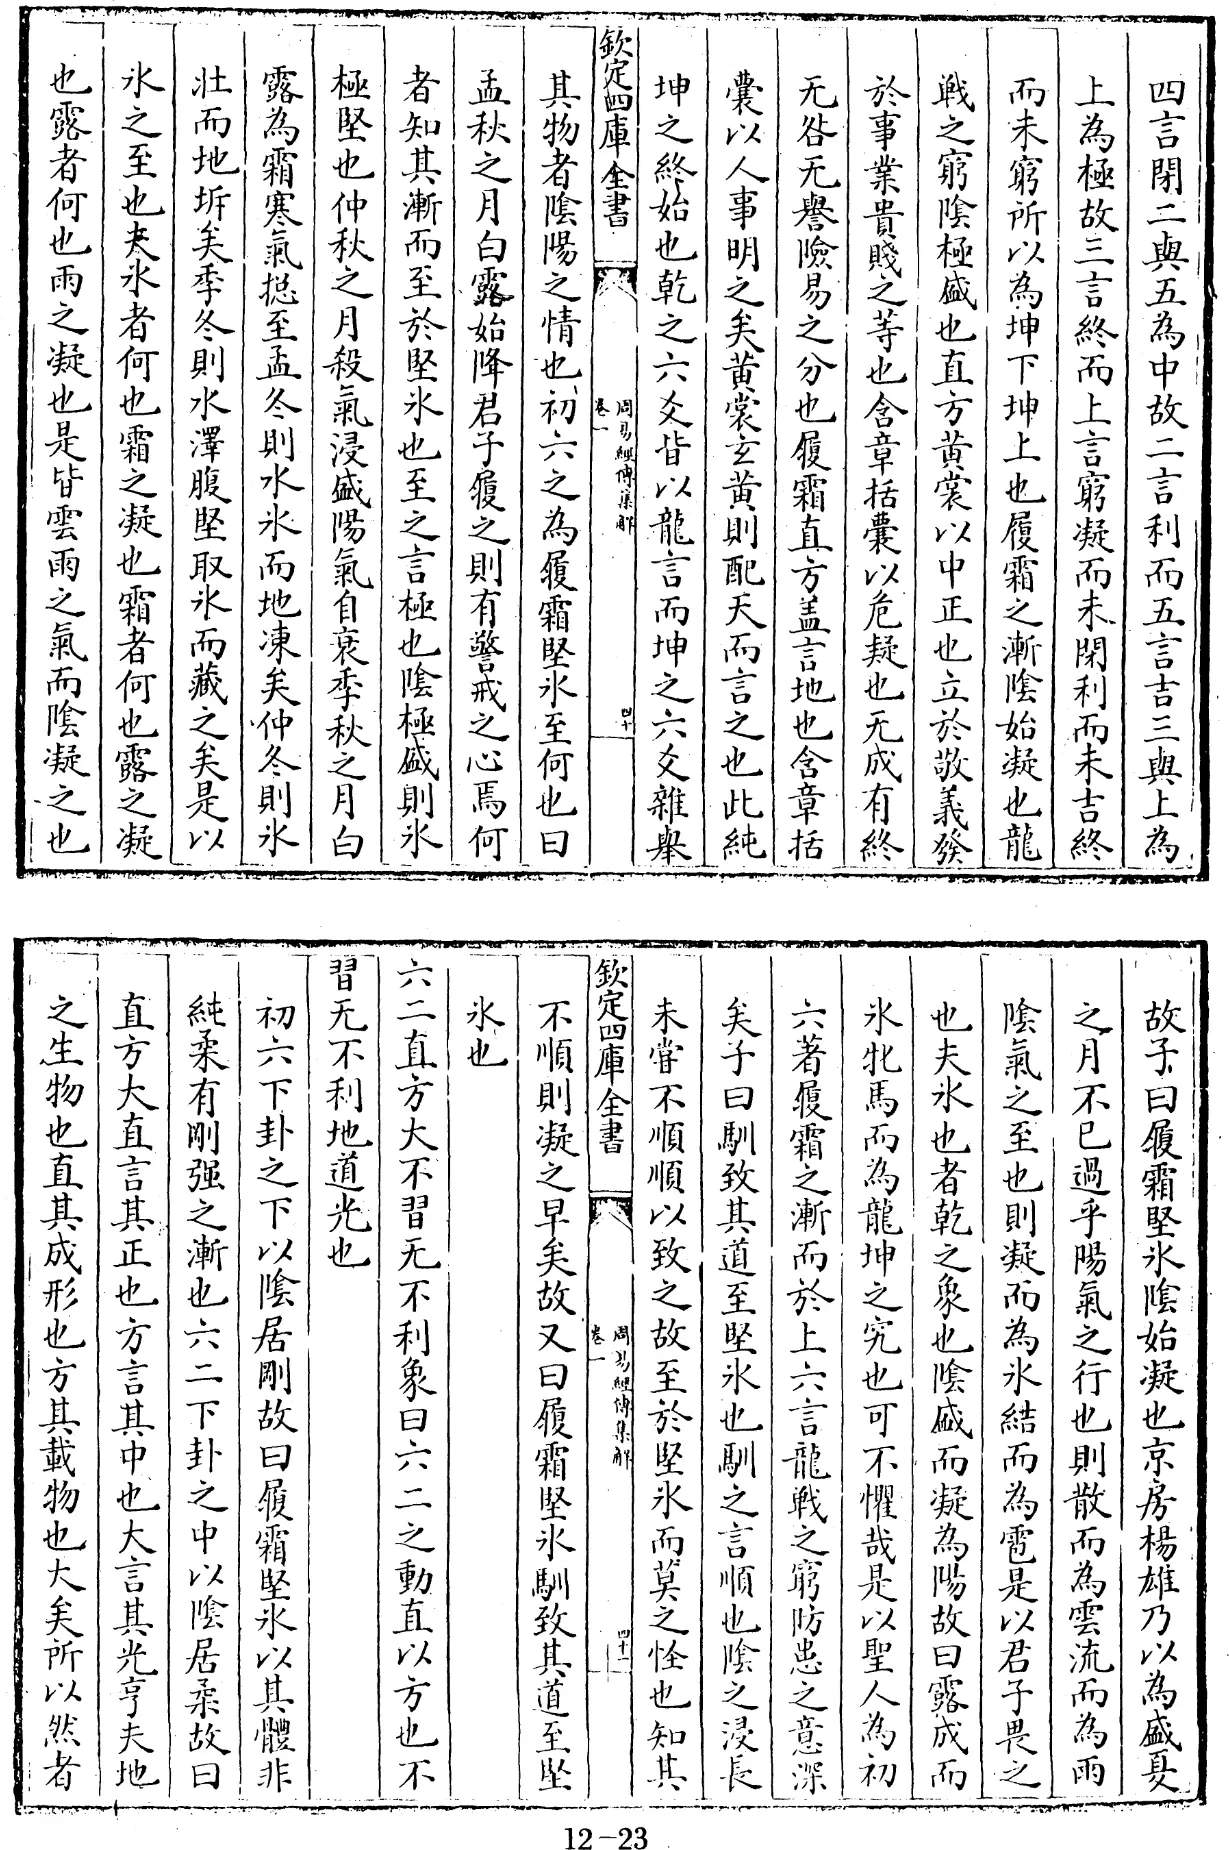 四言閉二與五為中故二言利而五言吉三與上為
上為極故三言終而上言窮凝而未閉利而未吉終
而未窮所以為坤下坤上也履霜之漸陰始凝也龍
戰之窮陰極盛也直方黃裳以中正也立於敬義發
於事業貴賤之等也含章括囊以危疑也无成有終
无咎无譽險易之分也履霜直方盖言地也含章括
囊以人事明之矣黃裳玄黃則配天而言之也此純
坤之終始也乾之六爻皆以龍言而坤之六爻雜舉
欽定四庫全書
周易經傳集解
卷一
四十
其物者陰陽之情也初六之為履霜堅氷至何也曰
孟秋之月白露始降君子履之則有警戒之心焉何
者知其漸而至於堅氷也至之言極也陰極盛則氷
極堅也仲秋之月殺氣浸盛陽氣自衰季秋之月白
露為霜寒氣摠至孟冬則水氷而地凍矣仲冬則氷
壯而地坼矣季冬則水澤腹堅取氷而藏之矣是以
氷之至也夫氷者何也霜之凝也霜者何也露之凝
也露者何也雨之凝也是皆雲雨之氣而陰凝之也
故子曰履霜堅氷陰始凝也京房楊雄乃以為盛夏
之月不已過乎陽氣之行也則散而為雲流而為雨
陰氣之至也則凝而為氷結而為雹是以君子畏之
也夫氷也者乾之象也陰盛而凝為陽故曰露成而
氷牝馬而為龍坤之究也可不懼哉是以聖人為初
六著履霜之漸而於上六言龍戰之窮防患之意深
矣子曰馴致其道至堅氷也馴之言順也陰之浸長
未嘗不順順以致之故至於堅氷而莫之怪也知其
欽定四庫全書
周易經傳集解
卷一
四十一
不順則凝之早矣故又曰履霜堅氷馴致其道至堅
氷也
六二直方大不習无不利象曰六二之動直以方也不
習无不利地道光也
初六下卦之下以陰居剛故曰履霜堅氷以其體非
純柔有剛强之漸也六二下卦之中以陰居柔故曰
直方大直言其正也方言其中也大言其光亨夫地
之生物也直其成形也方其載物也大矣所以然者
12-23